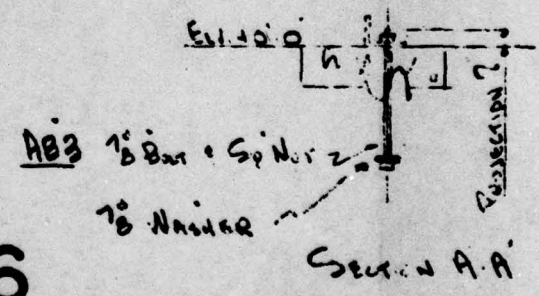 El. 100'-0"
PROJECTION ?
AB3 7/8"ø Bolt & Sq Nut
7/8"ø WASHER
SECTION A-A'
6